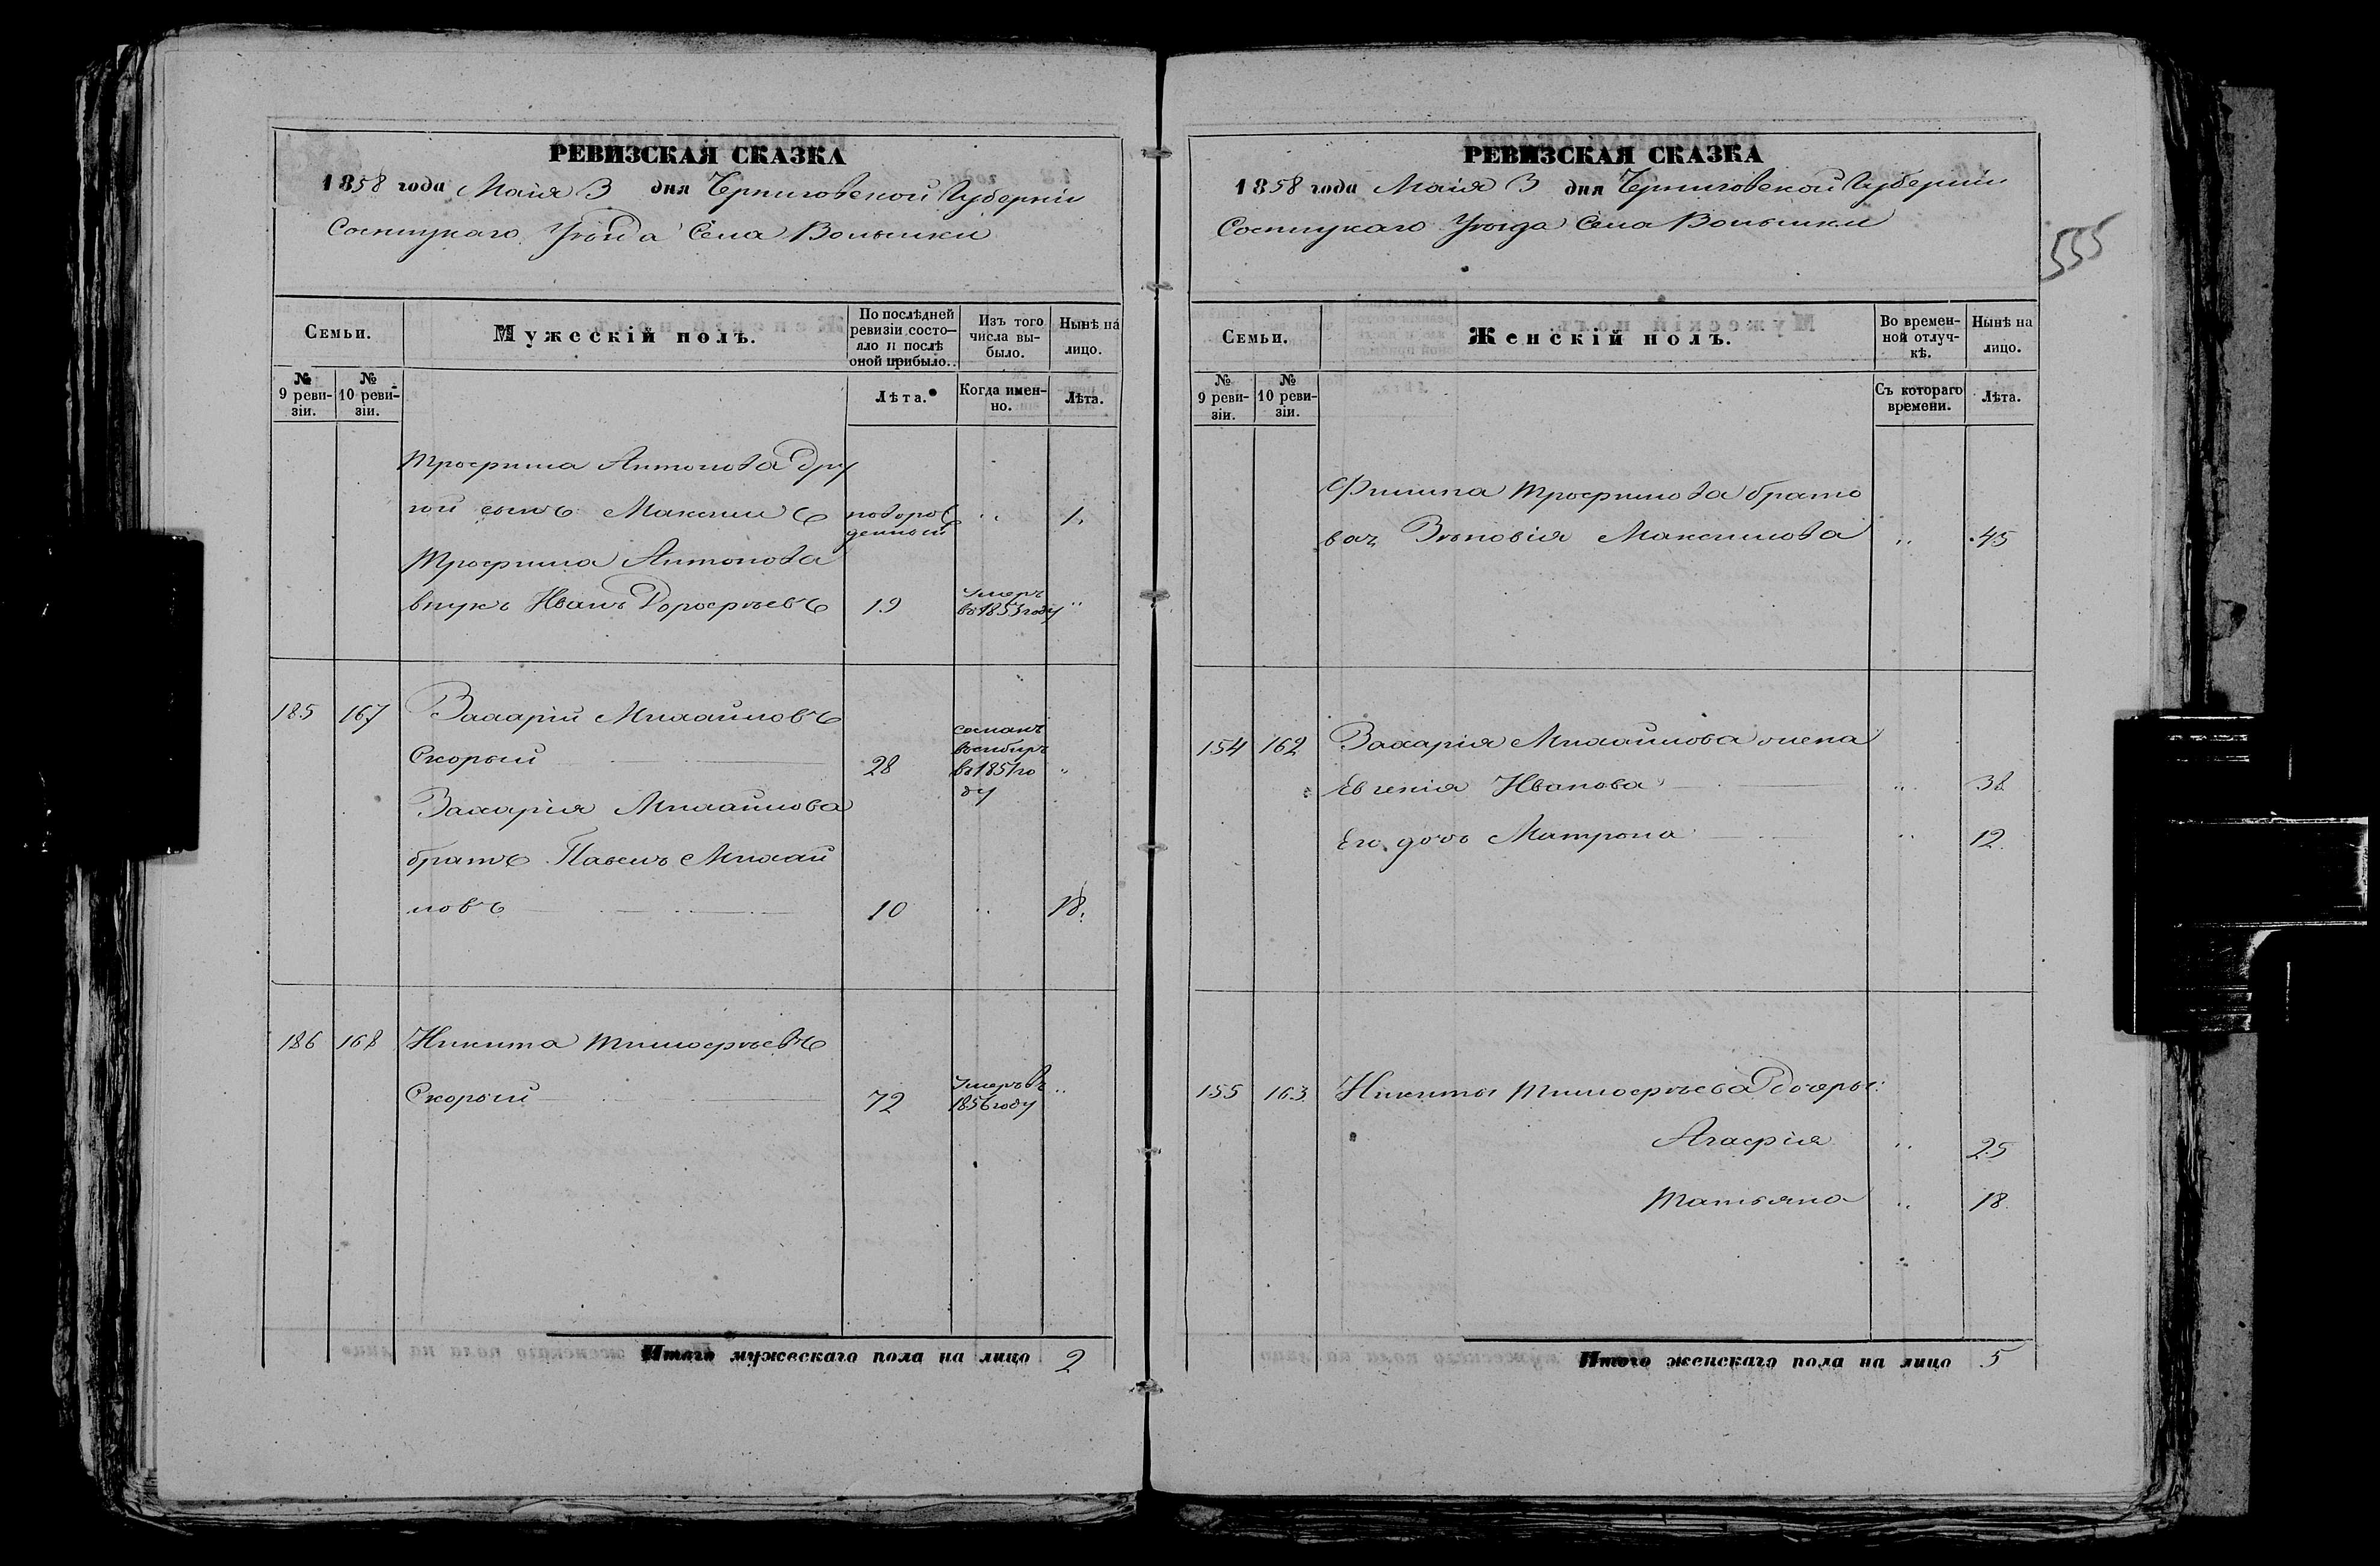 РЕВИЗСКАЯ СКАЗКА
1858 года Маія 3 дня Черниговской Губерніи
Сосницкаго Уѣзда Села Волынки
Семьи.
Мужескій полъ.
По послѣдней ревизіи состо-
яло и послѣ
оной прибыло.
Изъ того
числа вы-
было.
Нынѣ на
лицо.
№
9 реви-
зіи.
№
10 реви-
зіи.
Лѣта.
Когда имен-
но.
Лѣта.
Трофима Антонова дру
гой сынъ Максимъ новорож
денный " 1.
Трофима Антонова
внукъ Иванъ Дорофѣевъ 19 умеръ
въ 1853 году "
185 167 Захарій Михайловъ
Скорый 28 сосланъ
въ сибирь
въ 1851 го
ду "
Захарія Михайлова
братъ Павелъ Михай
ловъ 10 " 18.
186 168 Никита Тимофѣевъ
Скорый 72 Умеръ въ
1856 году "
Итого мужескаго пола на лицо 2
РЕВИЗСКАЯ СКАЗКА
1858 года Маія 3 дня Черниговской Губерніи
Сосницкаго Уѣзда Села Волынки
555
Семьи.
Женскій полъ.
Во времен-
ной отлуч-
кѣ.
Нынѣ на
лицо.
№
9 реви-
зіи.
№
10 реви-
зіи.
Съ котораго
времени.
Лѣта.
Филипа Трофимова брато
вая Зѣновія Максимова " 45
154 162 Захарія Михайлова жена
Евгенія Иванова " 38
Его дочь Матрона " 12.
155 163 Никиты Тимофѣева дочеры:
Агафія " 25
Татьяна " 18.
Итого женскаго пола на лицо 5